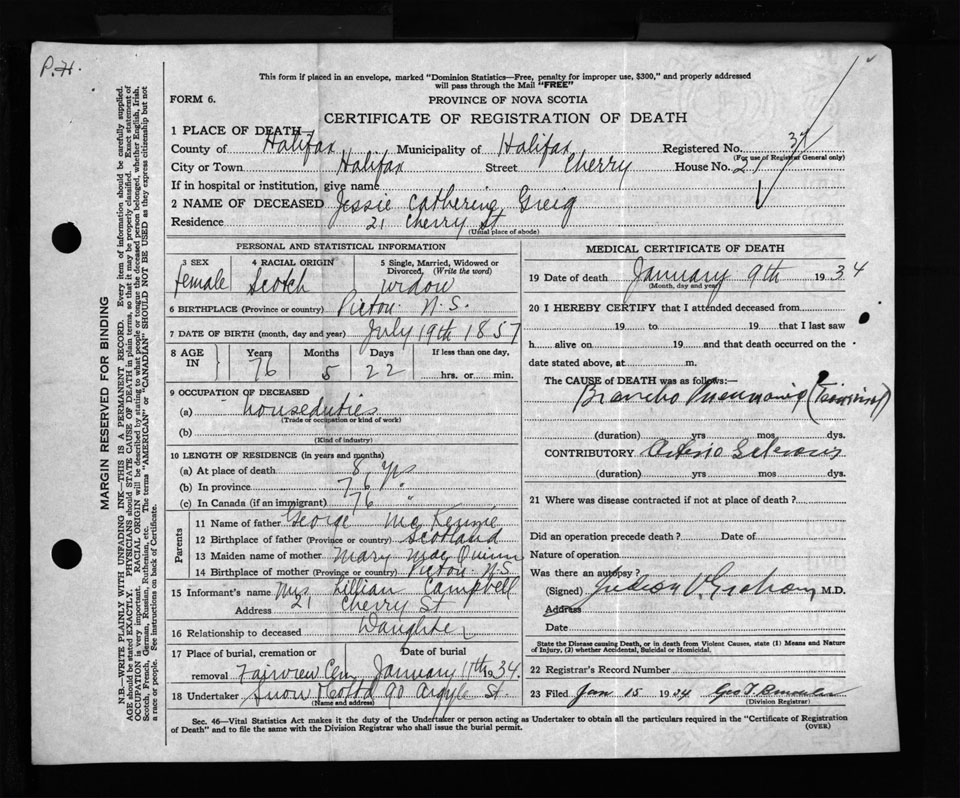 P.H.
This form if placed in an envelope, marked "Dominion Statistics—Free, penalty for improper use, $300," and properly addressed
will pass through the Mail "FREE"
FORM 6.
PROVINCE OF NOVA SCOTIA
CERTIFICATE OF REGISTRATION OF DEATH
1 PLACE OF DEATH—
County of Halifax Municipality of Halifax Registered No. 37
(For use of Registrar General only)
City or Town Halifax Street Cherry House No. 21
If in hospital or institution, give name
2 NAME OF DECEASED Jessie Catherine Greig
Residence 21 Cherry St
(Usual place of abode)
PERSONAL AND STATISTICAL INFORMATION
3 SEX 4 RACIAL ORIGIN 5 Single, Married, Widowed or
Divorced, (Write the word)
female Scotch widow
6 BIRTHPLACE (Province or country) Pictou N.S.
7 DATE OF BIRTH (month, day and year) July 19th 1857
8 AGE IN Years Months Days If less than one day,
76 5 22 hrs. or min.
9 OCCUPATION OF DECEASED
(a) houseduties
(Trade or occupation or kind of work)
(b)
(Kind of industry)
10 LENGTH OF RESIDENCE (in years and months)
(a) At place of death 8 yrs
(b) In province 76 "
(c) In Canada (if an immigrant) 76 "
Parents
11 Name of father George McKenzie
12 Birthplace of father (Province or country) Scotland
13 Maiden name of mother Mary MacQuinn
14 Birthplace of mother (Province or country) Pictou N.S.
15 Informant's name Mrs Lillian Campbell
Address 21 Cherry St
16 Relationship to deceased Daughter
17 Place of burial, cremation or Date of burial
removal Fairview Cem January 11th 1934.
18 Undertaker Snow & Co Ltd 90 Argyle St.
(Name and address)
MEDICAL CERTIFICATE OF DEATH
19 Date of death January 9th 1934
(Month, day and year)
20 I HEREBY CERTIFY that I attended deceased from
19 to 19 that I last saw
h alive on 19 and that death occurred on the
date stated above, at m.
The CAUSE of DEATH was as follows:—
Broncho Pneumonia (Terminal)
(duration) yrs mos dys.
CONTRIBUTORY Arterio Sclerosis
(duration) yrs mos dys.
21 Where was disease contracted if not at place of death?
Did an operation precede death? Date of
Nature of operation
Was there an autopsy?
(Signed) Judson V. Graham M.D.
Address
Date
State the Disease causing Death, or in death from Violent Causes, state (1) Means and Nature
of Injury, (2) whether Accidental, Suicidal or Homicidal.
22 Registrar's Record Number
23 Filed Jan 15 1934
(Division Registrar)
Sec. 46—Vital Statistics Act makes it the duty of the Undertaker or person acting as Undertaker to obtain all the particulars required in the "Certificate of Registration
of Death" and to file the same with the Division Registrar who shall issue the burial permit.
(OVER)
MARGIN RESERVED FOR BINDING
N.B.—WRITE PLAINLY WITH UNFADING INK—THIS IS A PERMANENT RECORD. Every item of information should be carefully supplied.
AGE should be stated EXACTLY. PHYSICIANS should STATE CAUSE OF DEATH in plain terms, so that it may be properly classified. Exact statement of
OCCUPATION is very important. RACIAL ORIGIN will be described by stating to what people or tongue the deceased person belonged, whether English, Irish,
Scotch, French, German, Russian, Ruthenian, etc. The terms "AMERICAN" or "CANADIAN" SHOULD NOT BE USED as they express citizenship but not
a race or people. See instructions on back of Certificate.